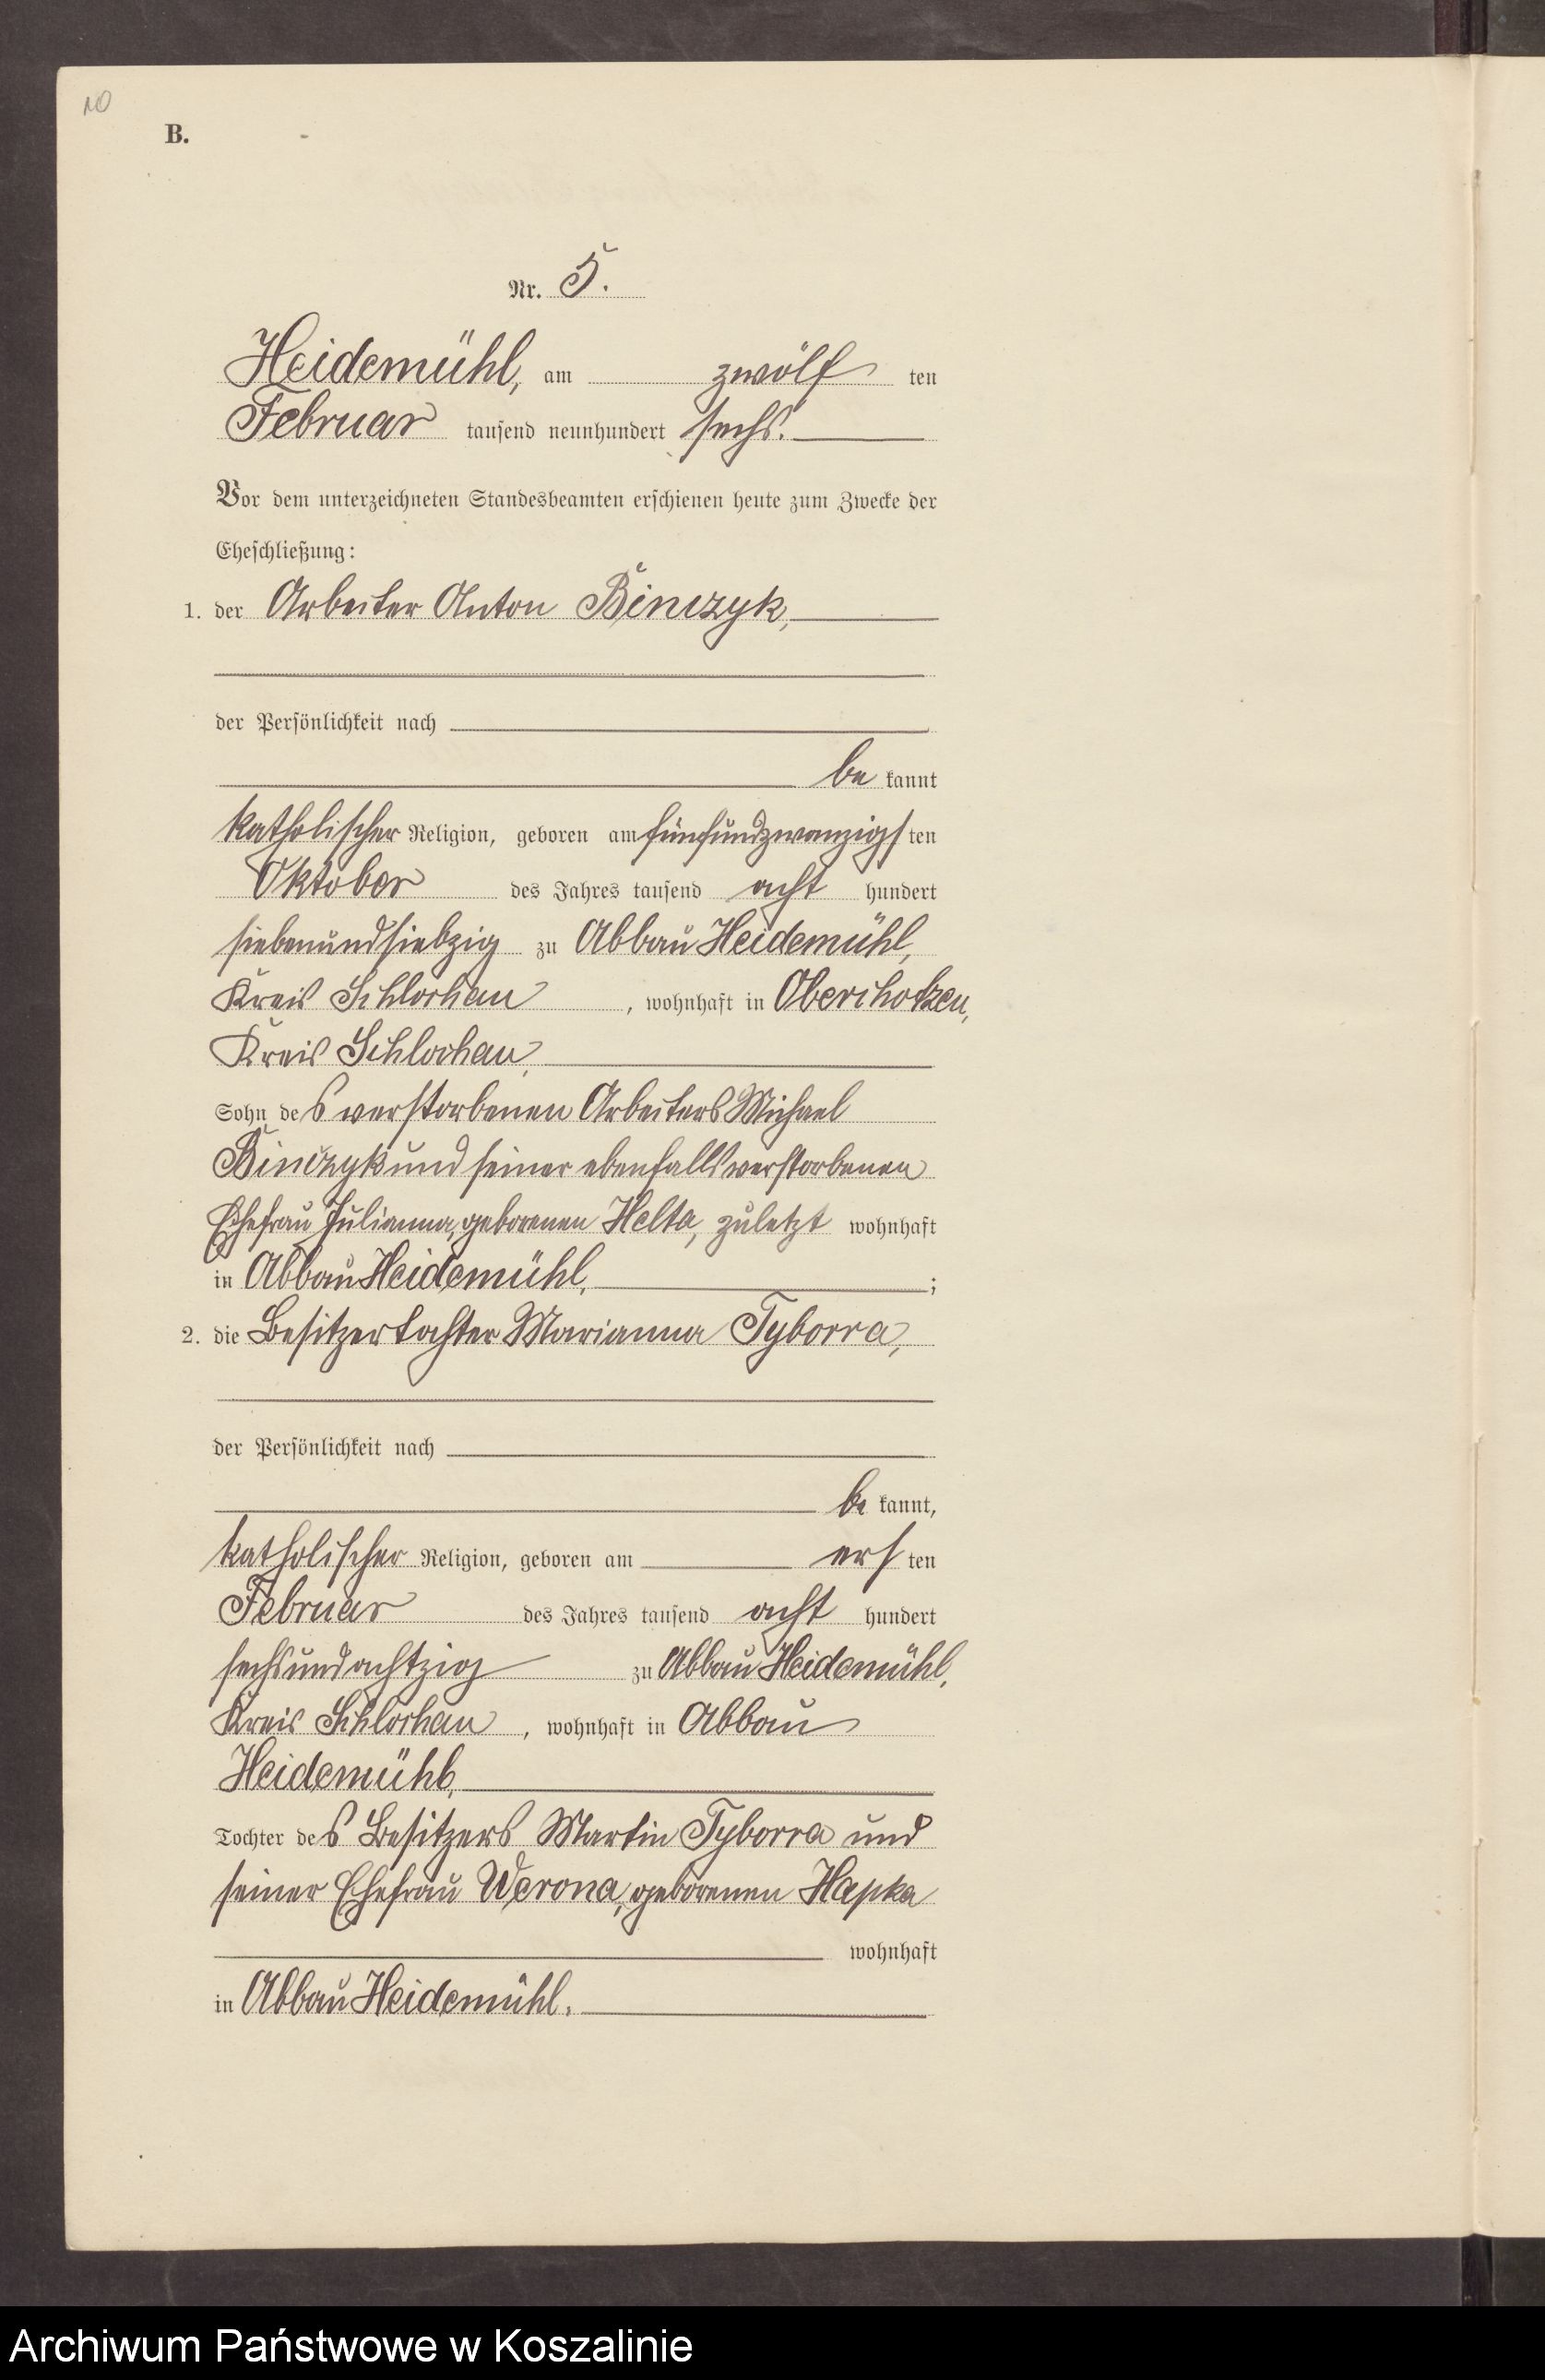 10
B.
Nr. 5.
Heidemühl, am zwölf ten
Februar tausend neunhundert sechs.
Vor dem unterzeichneten Standesbeamten erschienen heute zum Zwecke der
Eheschließung:
1. der Arbeiter Anton Binczyk,
der Persönlichkeit nach
be kannt
katholischer Religion, geboren am fünfundzwanzigs ten
Oktober des Jahres tausend acht hundert
siebenundsiebzig zu Abbau Heidemühl,
Kreis Schlochau, wohnhaft in Oberchotzen,
Kreis Schlochau,
Sohn des verstorbenen Arbeiters Michael
Binczyk und seiner ebenfalls verstorbenen
Ehefrau Julianna, geborenen Helta, zuletzt wohnhaft
in Abbau Heidemühl, ;
2. die Besitzertochter Marianna Tyborra,
der Persönlichkeit nach
be kannt,
katholischer Religion, geboren am ers ten
Februar des Jahres tausend acht hundert
sechsundachtzig zu Abbau Heidemühl,
Kreis Schlochau, wohnhaft in Abbau
Heidemühl,
Tochter des Besitzers Martin Tyborra und
seiner Ehefrau Werona, geborenen Hapka
wohnhaft
in Abbau Heidemühl.
Archiwum Państwowe w Koszalinie